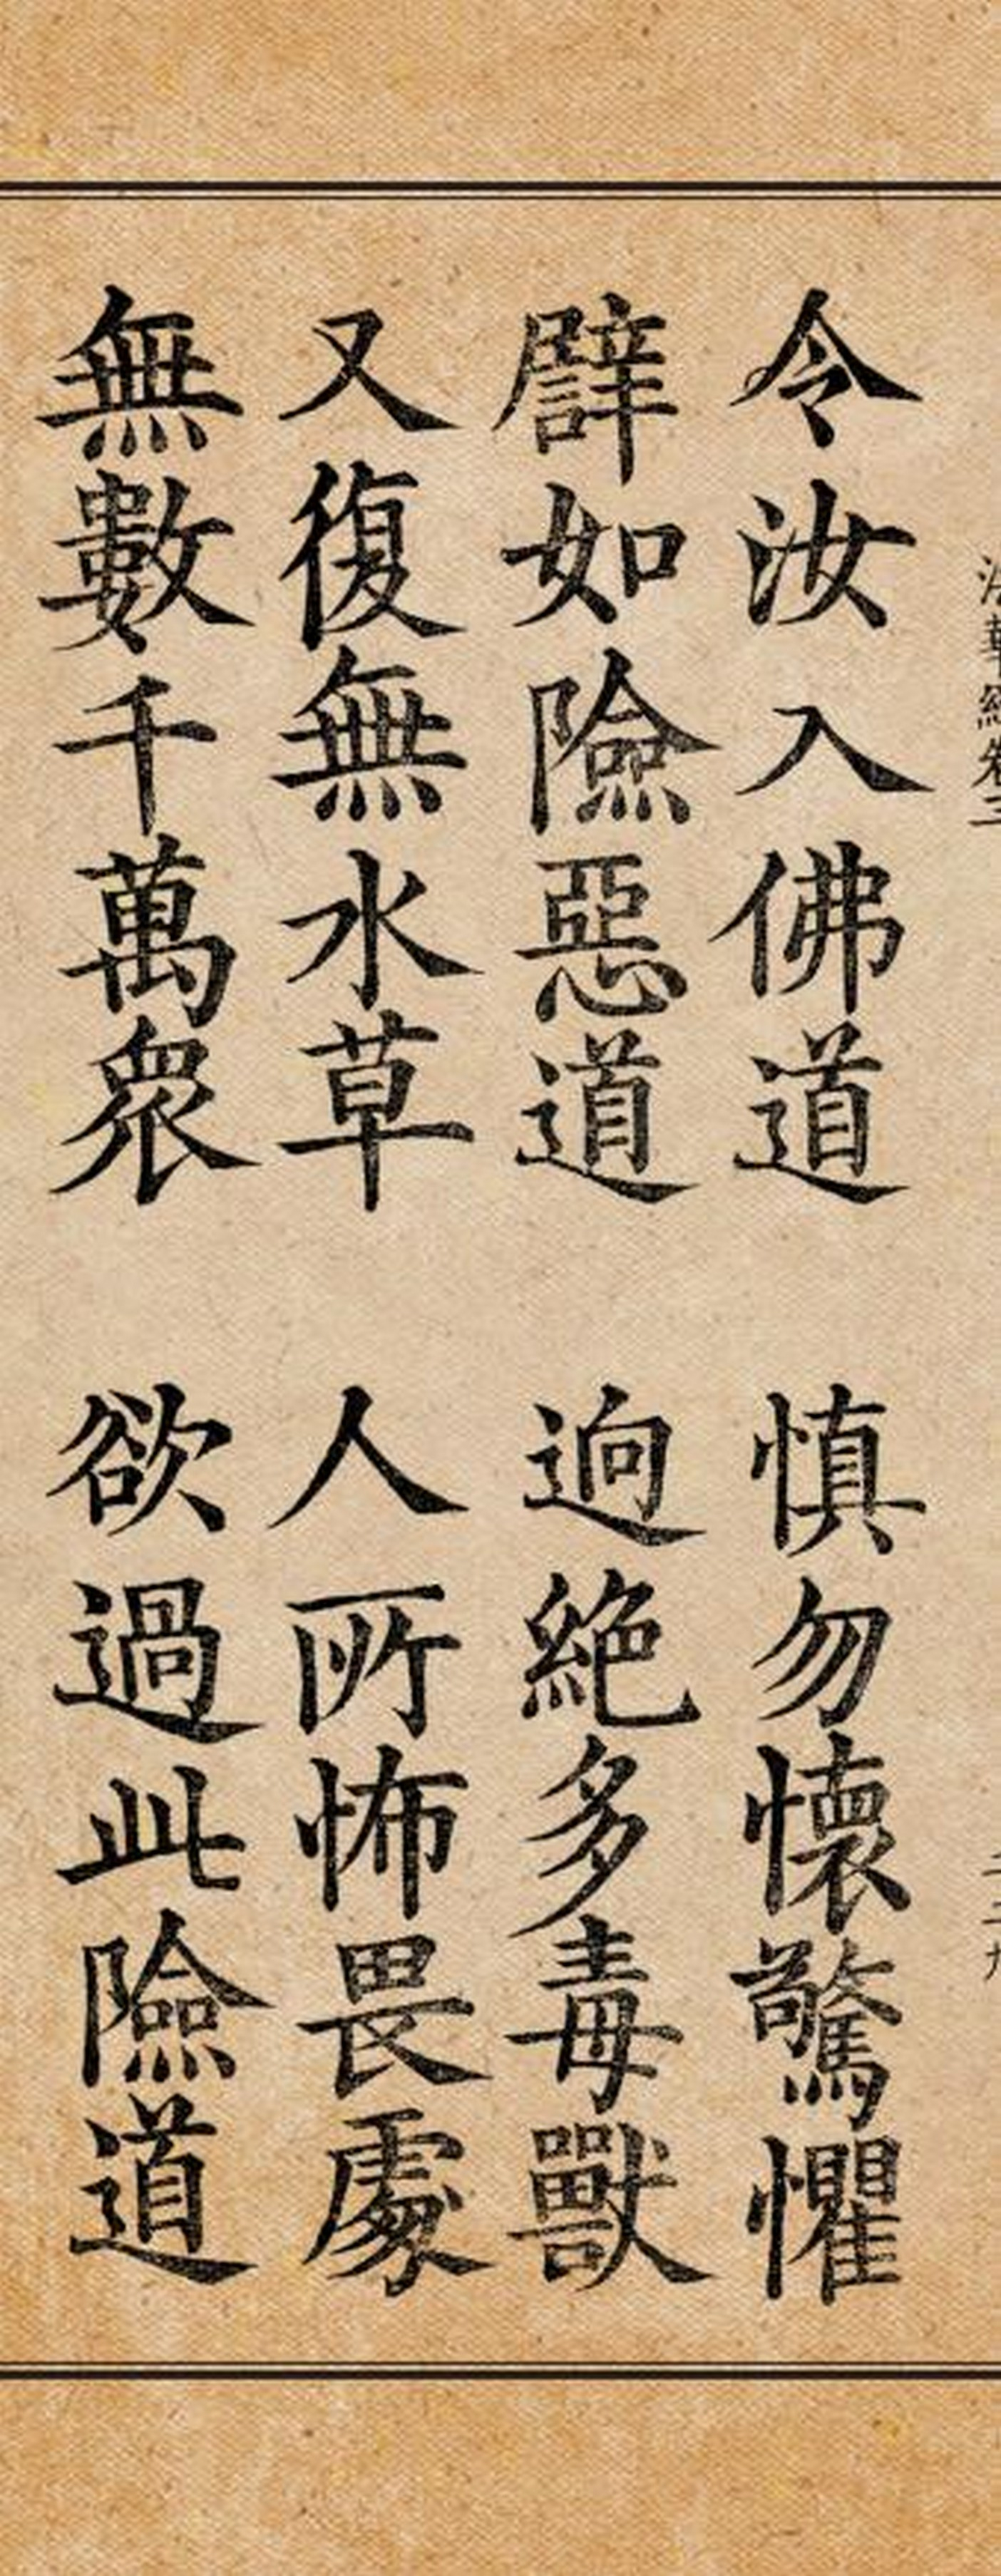 法華經卷三
令汝入佛道 慎勿懷驚懼
譬如險惡道 逈絶多毒獸
又復無水草 人所怖畏處
無數千萬眾 欲過此險道